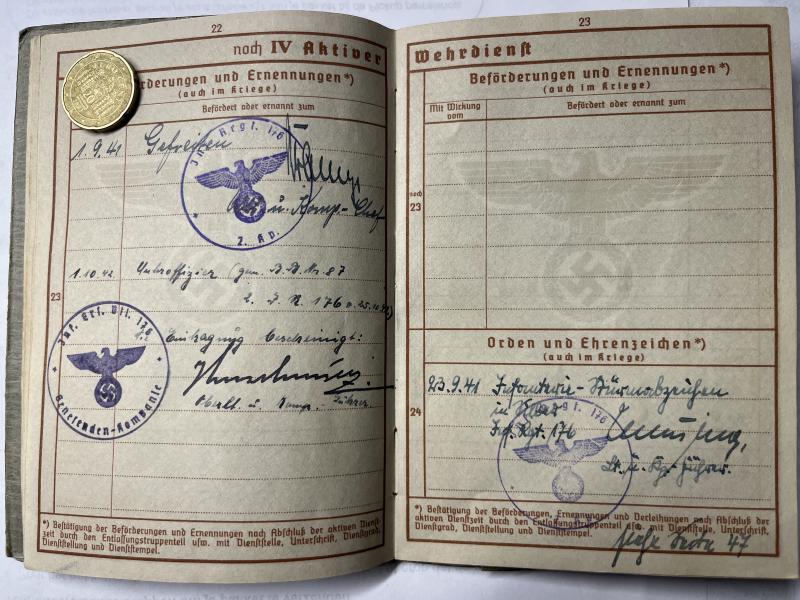 22
noch IV Aktiver
Beförderungen und Ernennungen*)
(auch im Kriege)
Befördert oder ernannt zum
1.9.41 Gefreiten
Inf. Regt. 176
2. Kp.
u. Komp.-Chef
1.10.42 Unteroffizier (gem. B.B. Nr. 87
2. J.R. 176 v. 25.10.42)
23
Inf. Ers. Btl. 176
Genesenden-Kompanie
Eintragung bescheinigt:
Oberlt. u. Komp. Führer
*) Bestätigung der Beförderungen und Ernennungen nach Abschluß der aktiven Dienst-
zeit durch den Entlassungstruppenteil usw. mit Dienststelle, Unterschrift, Dienstgrad,
Dienststellung und Dienststempel.
23
Wehrdienst
Beförderungen und Ernennungen*)
(auch im Kriege)
Mit Wirkung
vom
Befördert oder ernannt zum
noch
23
Orden und Ehrenzeichen*)
(auch im Kriege)
23.9.41 Infanterie-Sturmabzeichen
in Silber
24
Inf. Rgt. 176
Regt. 176
Lt. u. Kp.-Führer.
*) Bestätigung der Beförderungen, Ernennungen und Verleihungen nach Abschluß der
aktiven Dienstzeit durch den Entlassungstruppenteil usw. mit Dienststelle, Unterschrift,
Dienstgrad, Dienststellung und Dienststempel.
siehe Seite 47